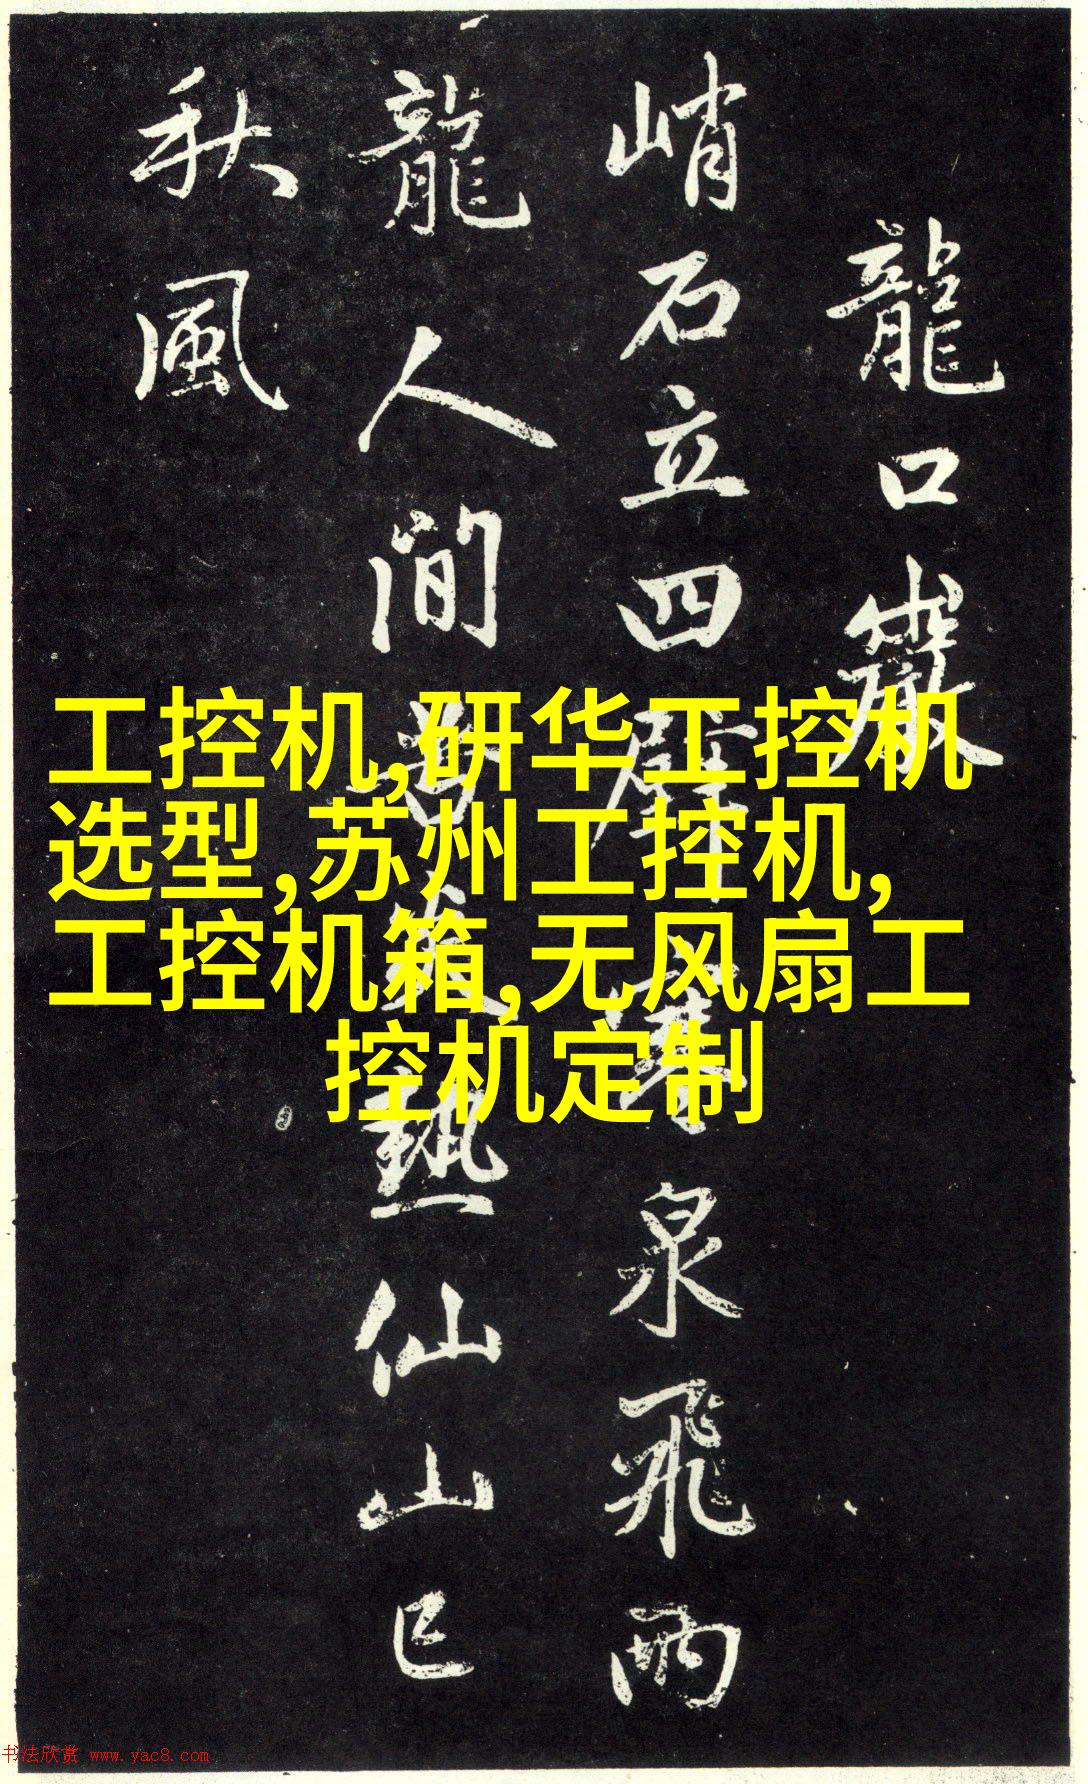 龍口巖
峭石立四壁寒泉飛兩
龍人間苦炎熱仙山已
秋風
工控机,研华工控机
选型,苏州工控机,
工控机箱,无风扇工
控机定制
书法欣赏 www.yac8.com